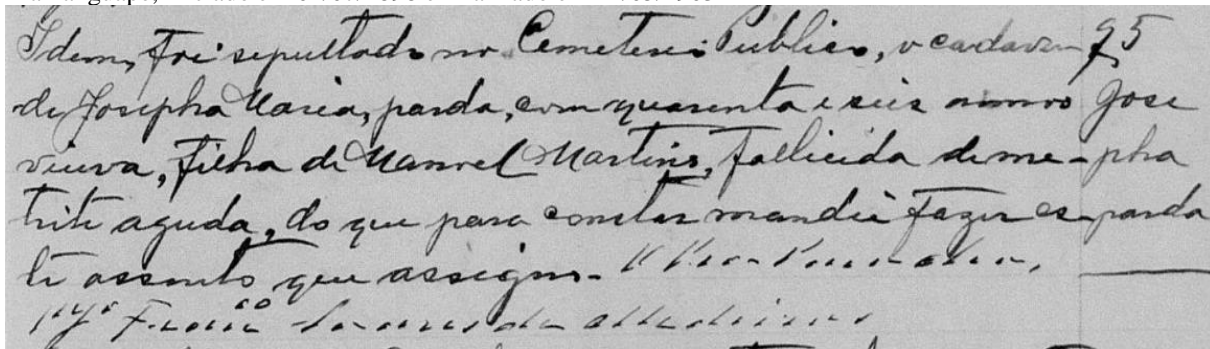 Idem, foi sepultado no Cemeterio Publico, o cadaver 95
de Josepha Maria, parda, com quarenta e seis annos Jose
viuva, filha de Manoel Martins, fallicida de me- pha
trite aguda, do que para constar mandei fazer es- parda
te assento que assigno.
Soares de Medeiros